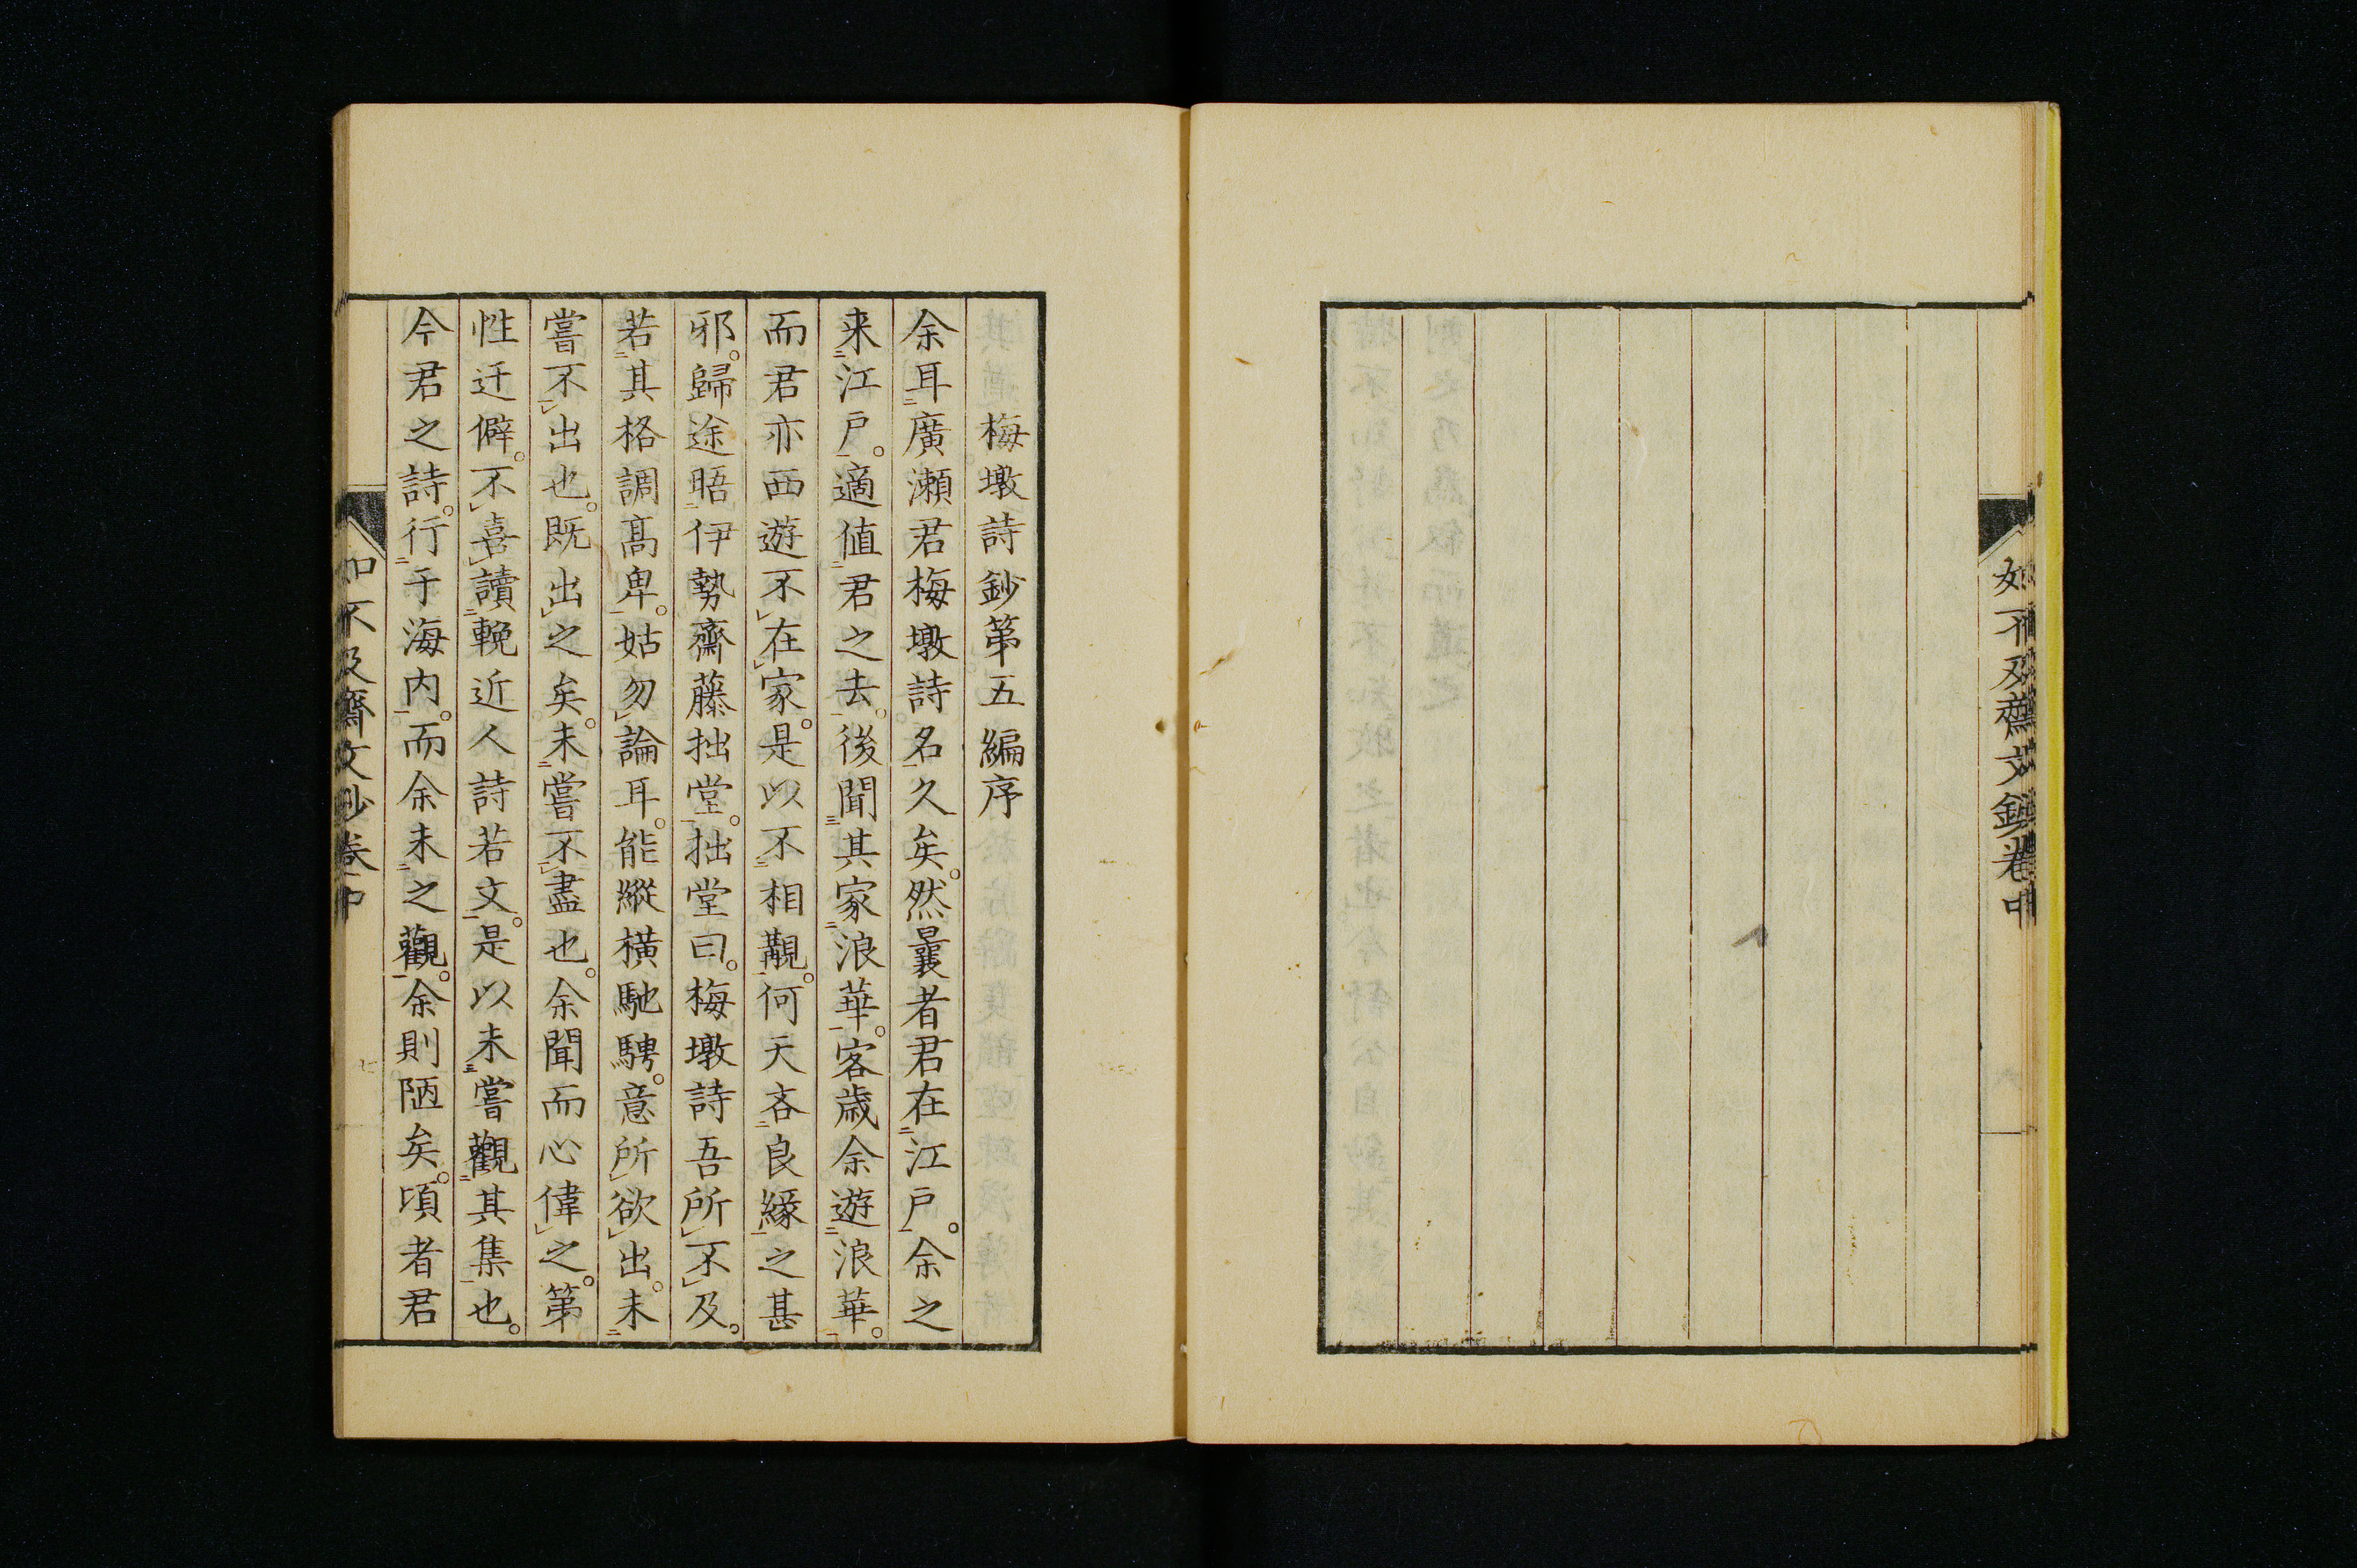 如不及齋文鈔卷中
梅墩詩鈔第五編序
余耳廣瀨君梅墩詩名久矣。然曩者君在江戸。余之
来江戸。適値君之去。後聞其家浪華。客歲余遊浪華。
而君亦西遊不在家。是以不相覯。何天吝良緣之甚
邪。歸途晤伊勢齋藤拙堂。拙堂曰。梅墩詩吾所不及。
若其格調髙卑。姑勿論耳。能縱橫馳騁。意所欲出。未
嘗不出也。既出之矣。未嘗不盡也。余聞而心偉之。第
性迂僻。不喜讀輓近人詩若文。是以未嘗觀其集也。
今君之詩。行于海内。而余未之觀。余則陋矣。頃者君
如不及齋文鈔卷中